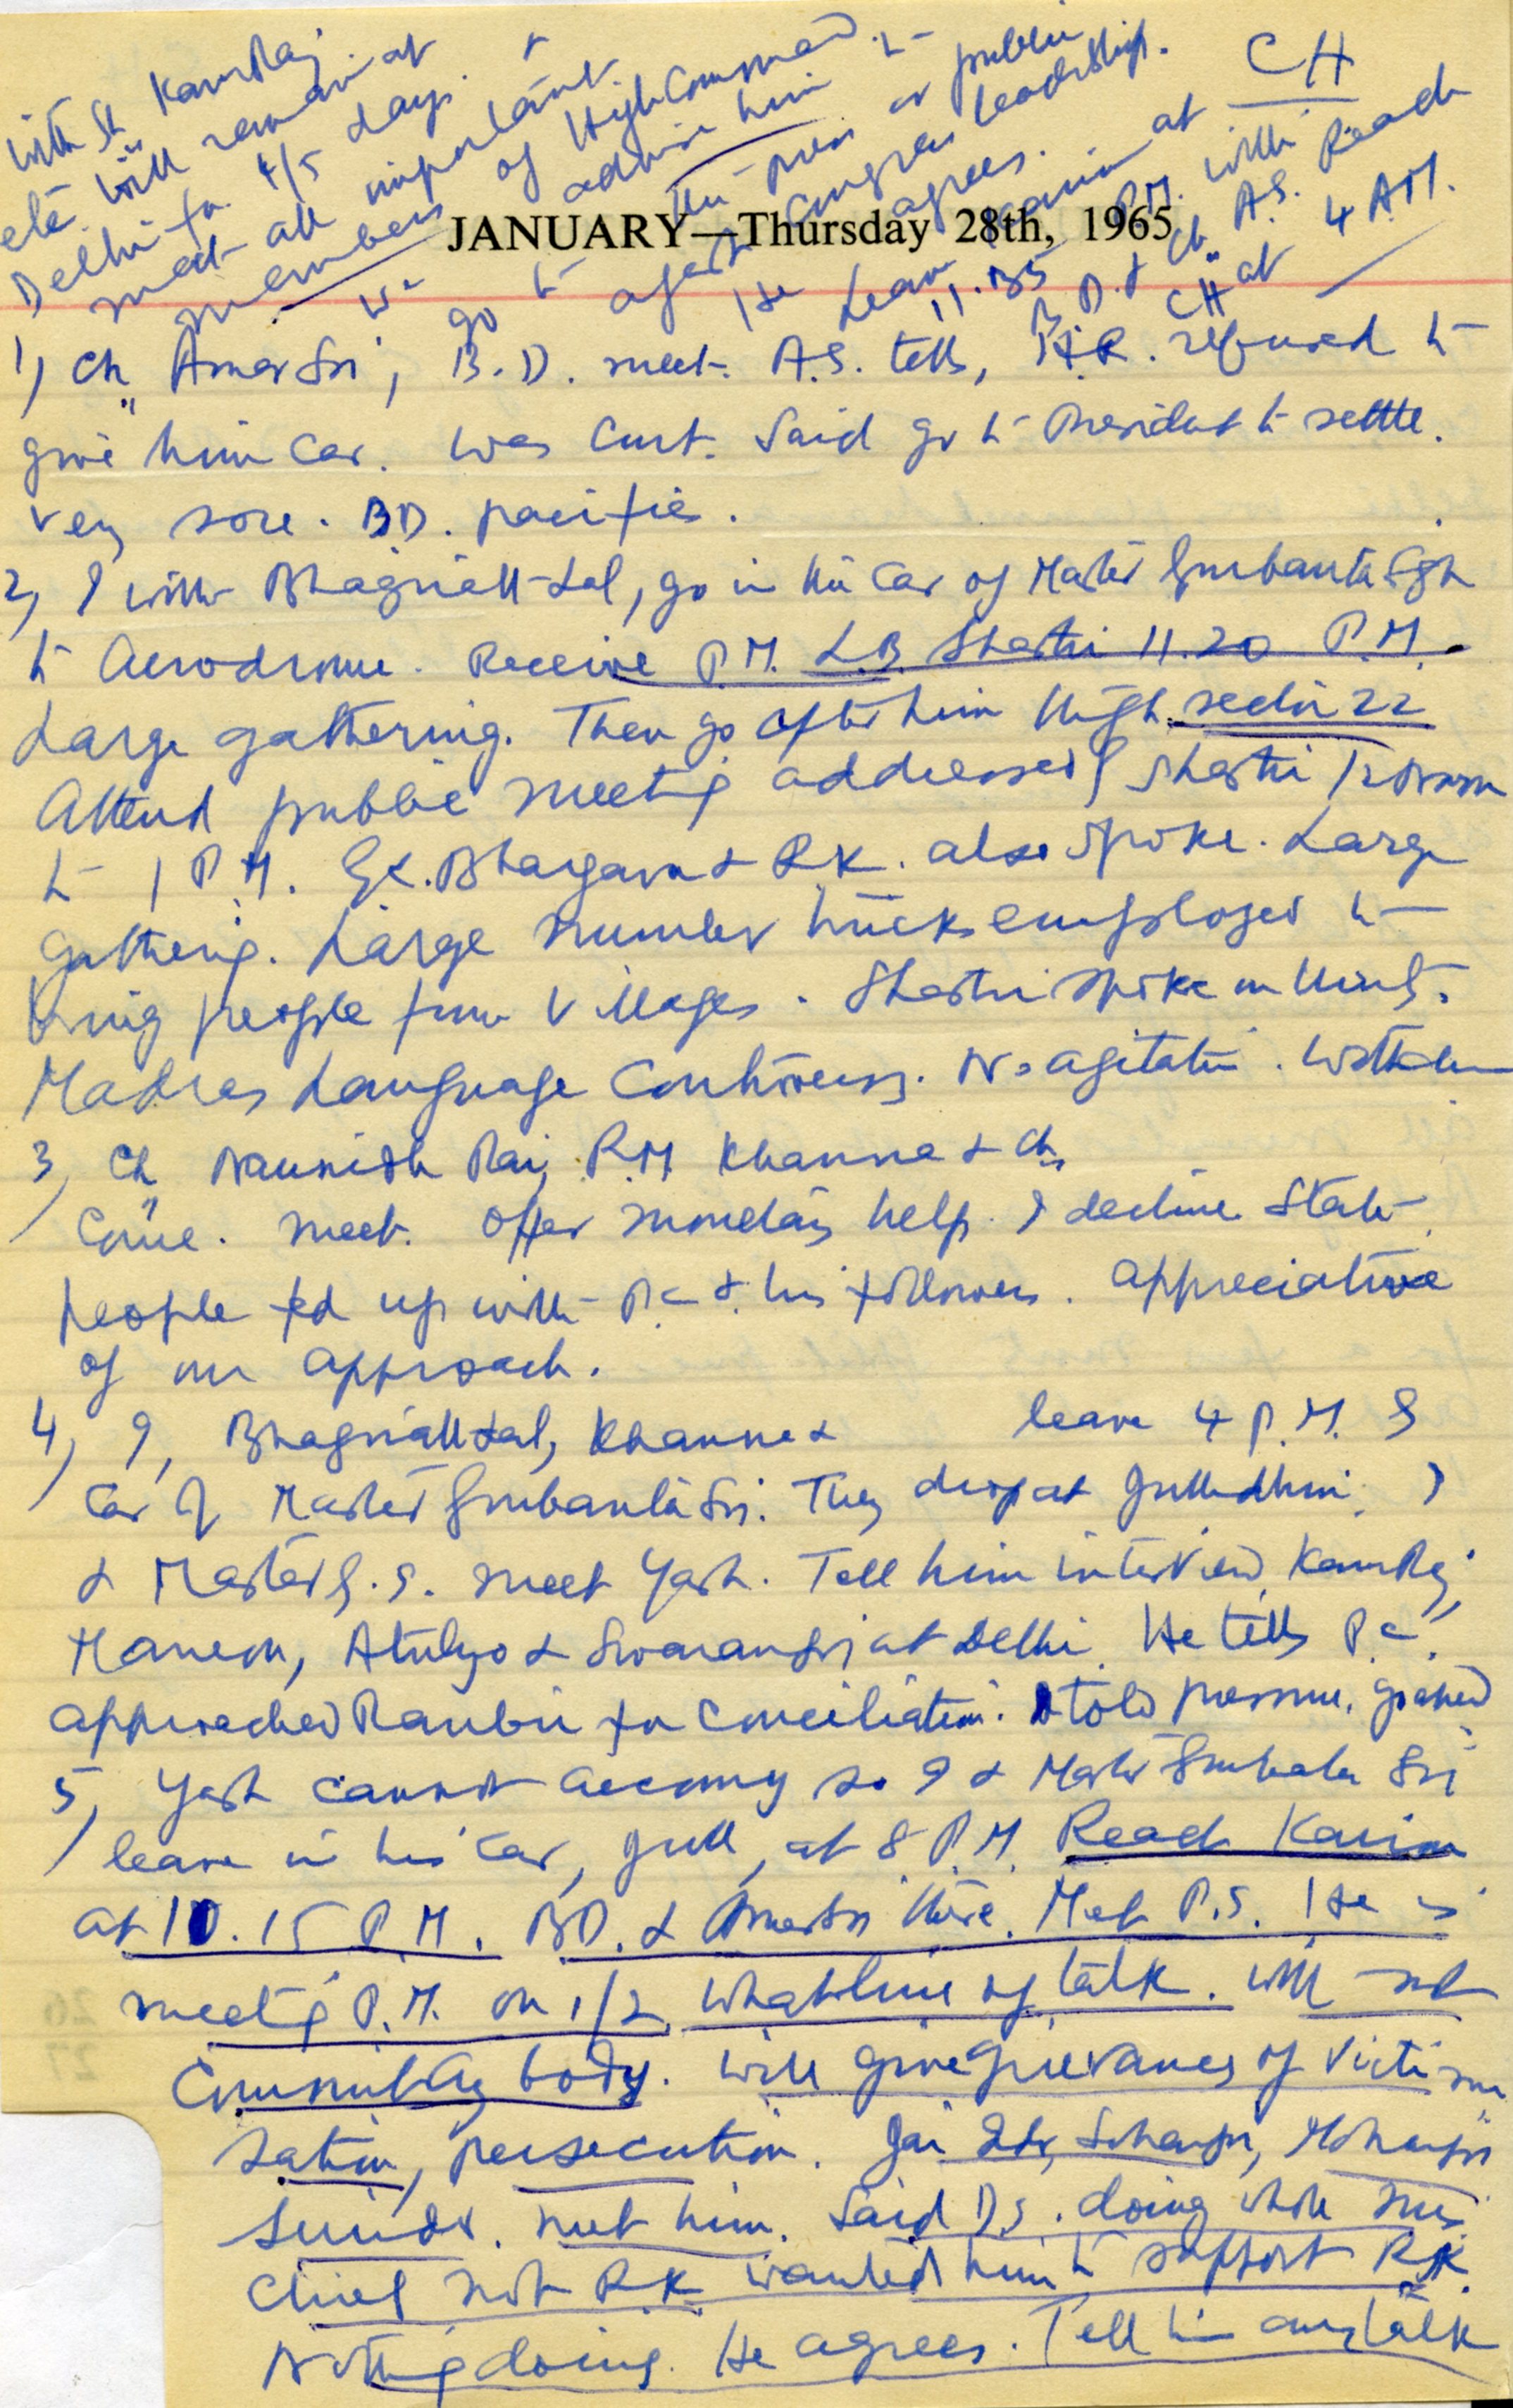 CH
with Sh KamRaj
etc. will remain at
Delhi for 4/5 days. &
meet all important
members of High Command.
We advise him to
go to the press or public
again Congress Leadership.
He agrees.
Leave again at
11.35 P.M. with
B.D. & Ch. A.S. Reach
CH at 4 A.M.
JANUARY—Thursday 28th, 1965
1) Ch Amar Sri, B.D. meet. A.S. tells, H.R. refused to
give him Car. Was Curt. Said go to President to settle.
Very sore. B.D. pacifies.
2) I with Bhagirath Lal, go in the Car of Master Gurbanta Sgh
to Aerodrome. Receive P.M. L.B. Shastri 11.20 P.M.
Large gathering. Then go after him thgh sector 22
Attend public meeting addressed by Shastri 12 noon
to 1 P.M. Bhargava & R.K. also spoke. Large
gathering. Large number trucks employed to
bring people from Villages. Shastri spoke on
Madras Language Controversy. No agitation.
3) Ch Naunidh Rai, R.M. Khanna & Ch
Come. Meet. Offer monetary help. I decline. State
people fed up with P.C. & his followers. Appreciative
of our approach.
4) I, Bhagirath Lal, Khanna & leave 4 P.M.
Car of Master Gurbanta Sri. They drop at Jullundhur. I
& Master G.S. meet Yash. Tell him interview KamRaj,
Manean, Atulya & Swaran Sri at Delhi. He tells P.C.
approached Ranbir for Conciliation. told pressure.
5) Yash cannot accompy so I & Master Gurbanta Sri
leave in his Car, Jull, at 8 P.M. Reach
at 10.15 P.M. BD. & Amar Sri there. Met P.S. He is
meeting P.M. on 1/2. What line of talk. Will not
Commit any body. Will give grievances of Victimi
sation, persecution. Jai Sohan Sri, Mohan Sri
met him. Said D.S. doing whole
Chief not R.K. wanted him to support R.K.
Nothing doing. He agrees. Tell him our talk